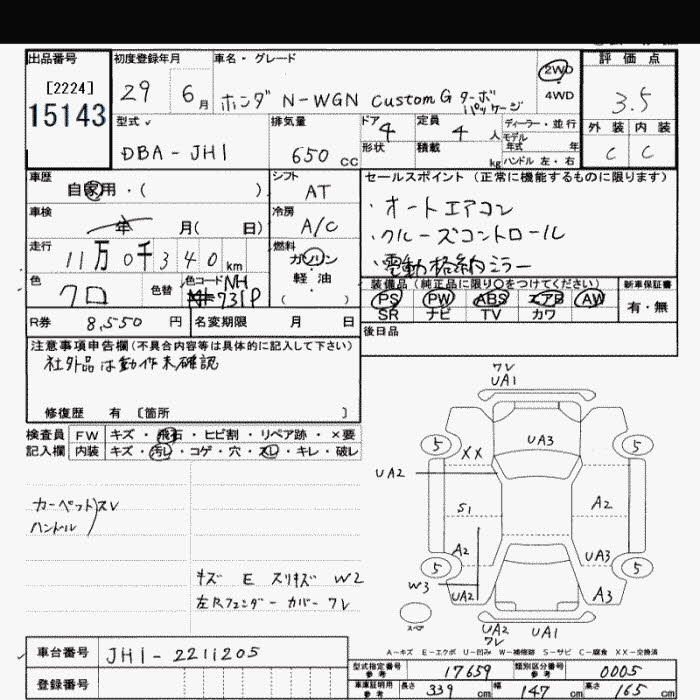 出品番号
[2224]
15143
初度登録年月
29 6月
車名・グレード
ホンダ N-WGN Custom G ターボパッケージ
2WD
4WD
評価点
3.5
外装 内装
C C
型式
DBA-JH1
排気量
650 cc
ドア 4
定員 4 人
形状
積載 kg
ディーラー・並行
モデル年式 年
ハンドル 左・右
車歴
自家用・( )
車検
年 月( 日)
走行
11万0千340km
色
クロ
色替
色コード NH
731P
シフト
AT
冷房
A/C
燃料
ガソリン
軽油
( )
セールスポイント (正常に機能するものに限ります)
・オートエアコン
・クルーズコントロール
・電動格納ミラー
装備品 (純正品に限り○をつけてください)
PS PW ABS エアB AW
SR ナビ TV カワ
新車保証書
有・無
後日品
R券 8,550 円
名変期限 月 日
注意事項申告欄 (不具合内容等は具体的に記入して下さい)
社外品は動作未確認
修復歴 有 〔箇所 〕
検査員記入欄
FW キズ・飛石・ヒビ割・リペア跡・×要
内装 キズ・汚レ・コゲ・穴・スレ・キレ・破レ
カーペット スレ
ハンドル
キズ E スリキズ W2
左Rフェンダーカバーワレ
ワレ
UA1
5
5
XX
UA3
UA2
S1
A2
A2
UA3
5
5
W3
UA2
A3
スペア
UA2
ワレ
UA1
A-キズ E-エクボ U-凹み W-補修跡 S-サビ C-腐食 XX-交換済
車台番号 JH1-2211205
登録番号
型式指定番号 参考 17659
類別区分番号 参考 0005
車庫証明用 参考 長さ 339 cm 幅 147 cm 高さ 165 cm